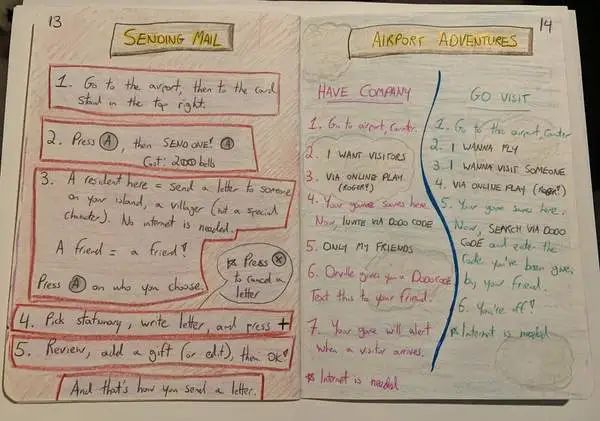 13
SENDING MAIL
1. Go to the airport, then to the card
stand in the top right.
2. Press Ⓐ, then SEND ONE! Ⓐ
Cost: 200 bells
3. A resident here = send a letter to someone
on your island, a villager (not a special
character). No internet is needed.
A friend = a friend!
Press Ⓐ on who you choose.
* Press Ⓧ
to cancel a
letter
4. Pick stationary, write letter, and press +
5. Review, add a gift (or edit), then OK!
And that's how you send a letter.
14
AIRPORT ADVENTURES
HAVE COMPANY
1. Go to airport, counter.
2. I WANT VISITORS
3. VIA ONLINE PLAY
(ROGER!)
4. Your game saves here.
Now, INVITE VIA DODO CODE
5. ONLY MY FRIENDS
6. Orville gives you a DODO CODE
Text this to your friend.
7. Your game will alert
when a visitor arrives.
* Internet is needed
GO VISIT
1. Go to the airport, counter
2. I WANNA FLY
3. I WANNA VISIT SOMEONE
4. VIA ONLINE PLAY (ROGER!)
5. Your game saves here.
Now, SEARCH VIA DODO
CODE and enter the
code you've been given
by your friend.
6. You're off!
* Internet is needed